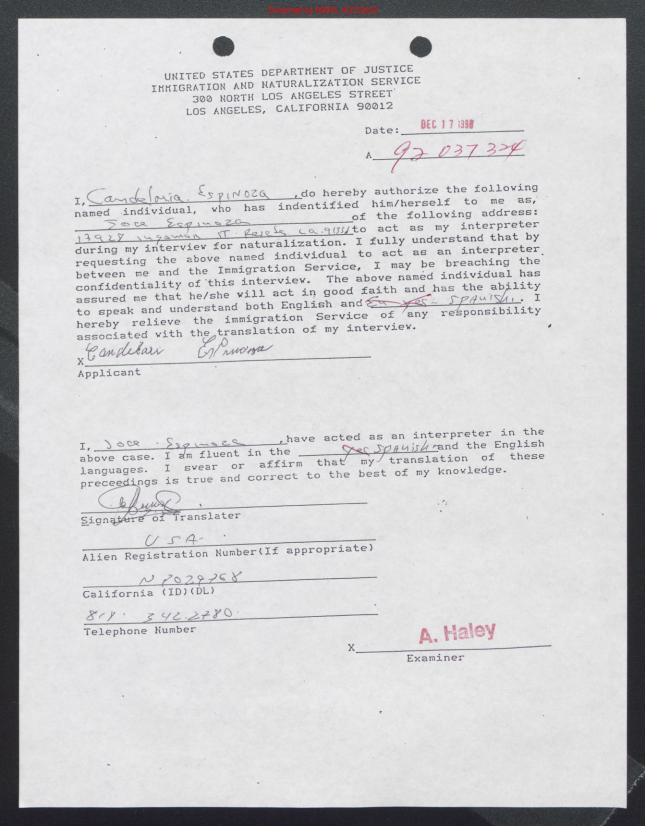 UNITED STATES DEPARTMENT OF JUSTICE
IMMIGRATION AND NATURALIZATION SERVICE
300 NORTH LOS ANGELES STREET
LOS ANGELES, CALIFORNIA 90012
Date: DEC 17 1998
A 92 037 324
I, Candelaria Espinoza, do hereby authorize the following
named individual, who has indentified him/herself to me as,
Joce Espinoza of the following address:
17928 Ingomar ST Reseda ca. 91335 to act as my interpreter
during my interview for naturalization. I fully understand that by
requesting the above named individual to act as an interpreter
between me and the Immigration Service, I may be breaching the
confidentiality of this interview. The above named individual has
assured me that he/she will act in good faith and has the ability
to speak and understand both English and SPANish. I
hereby relieve the immigration Service of any responsibility
associated with the translation of my interview.
X Candelari Espinoza
Applicant
I, Joce Espinoza, have acted as an interpreter in the
above case. I am fluent in the Yes SPANish and the English
languages. I swear or affirm that my translation of these
preceedings is true and correct to the best of my knowledge.
Signature of Translater
USA
Alien Registration Number(If appropriate)
N
California (ID)(DL)
818. 342.2780.
Telephone Number
A. Haley
X
Examiner